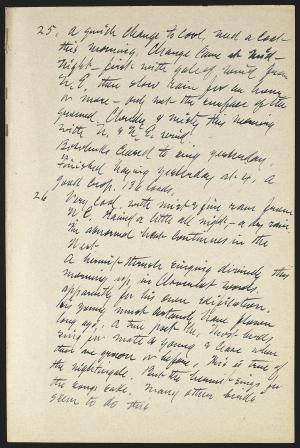 25, A quick change to cool, need a coat
this morning. Change came at mid-
night - first with gale of wind from
N.E. then slow rain for an hour
or more - only wet the surface of the
ground. Cloudy & misty this morning
with N. & N.E. wind
Bobolinks ceased to sing yesterday.
Finished haying yesterday at 4. A
good crop. 136 loads.
26 Very cool with mist & fine rain from
N.E. Rained a little all night - a dry rain.
The abnormal heat continues in the
West
A hermit thrush singing divinely this
morning up in woods,
apparently for his own edification.
His young must certainly have flown
long ago. In the past the, most birds,
sing for mate & young & cease when
these are grown or before. This is true of
the nightingale. But the hermit sings for
the songs sake. Many other birds
seem to do this